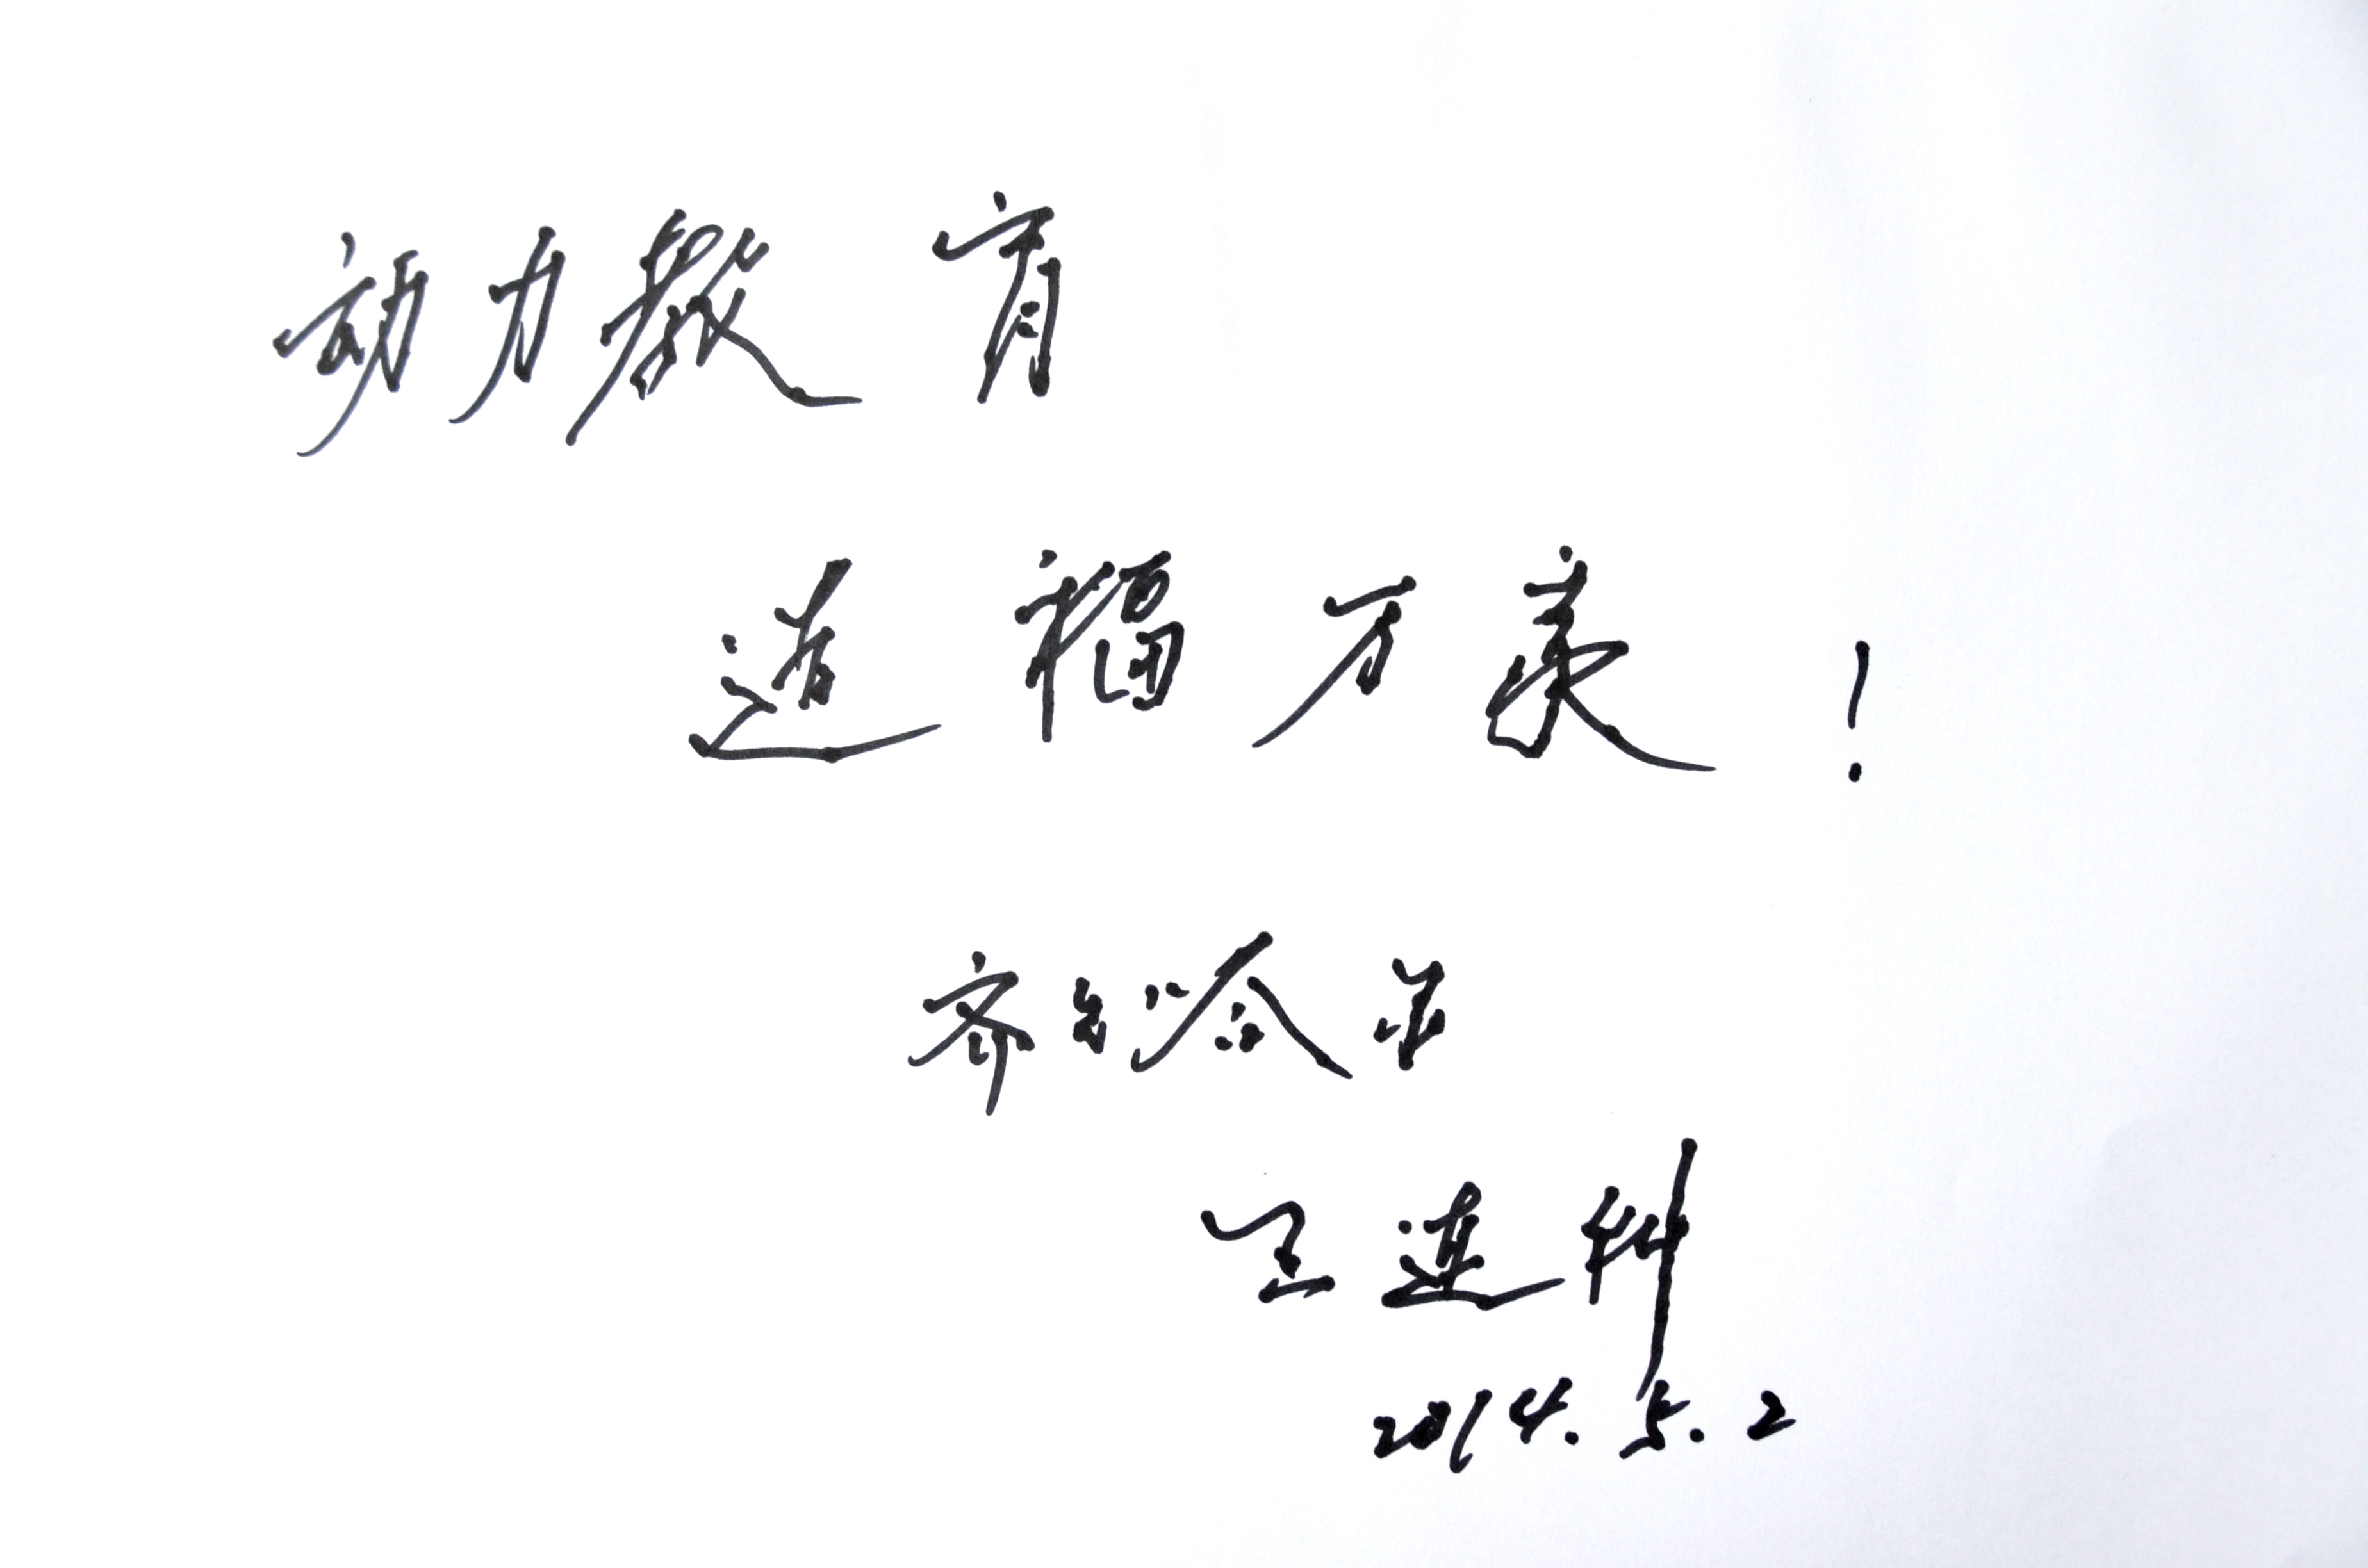 动力教育
造福万家！
齐齐哈尔
王连科
2014.5.2